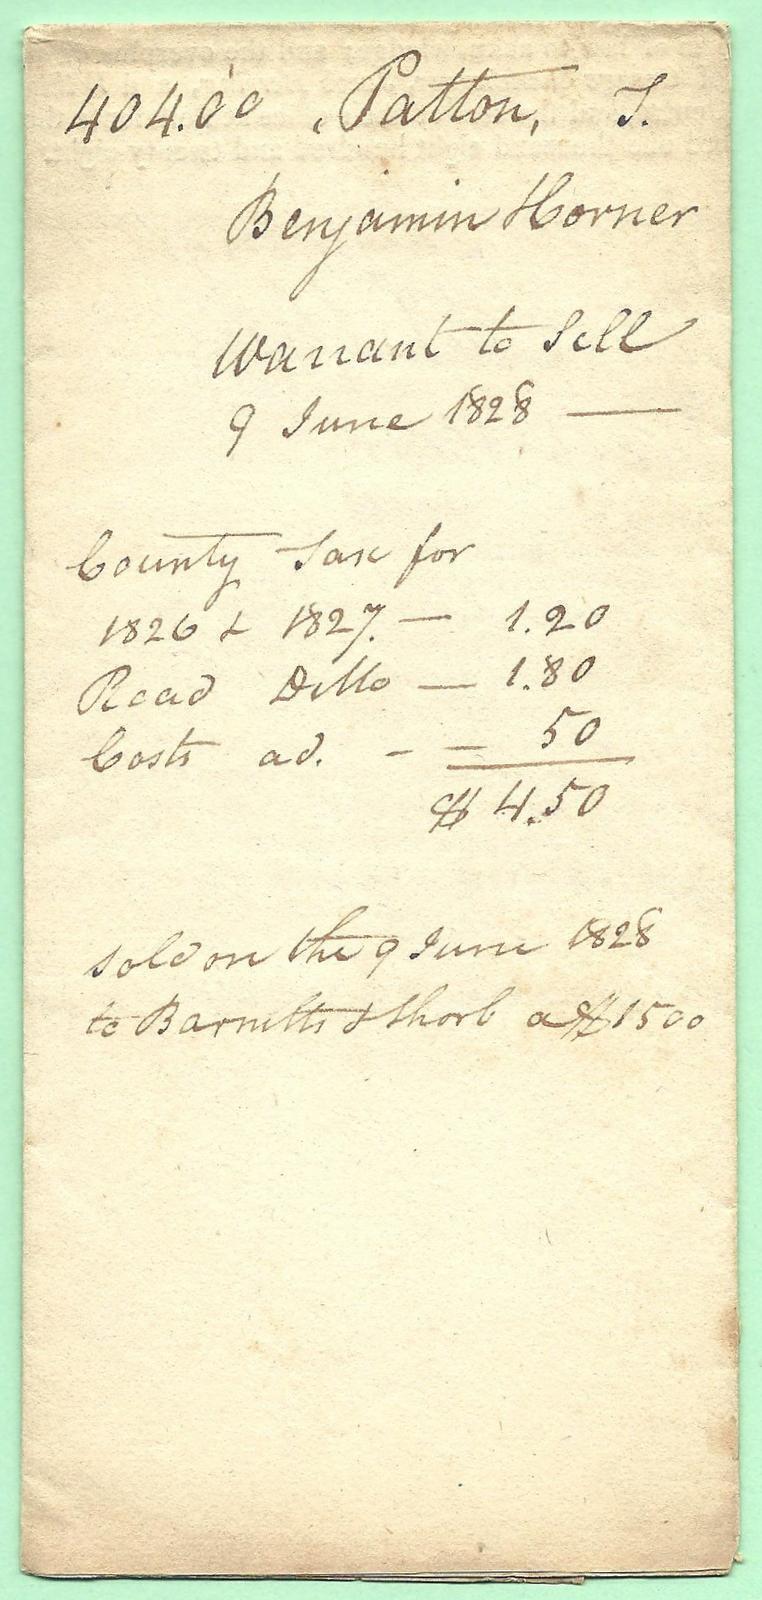 404.00 Patton, T.
Benjamin Horner
Warrant to Sell
9 June 1828 —
County Tax for
1826 & 1827. — 1.20
Road Ditto — 1.80
Costs ad. - - 50
$ 4.50
sold on the 9 June 1828
to Barnetts & Shorb a $1500